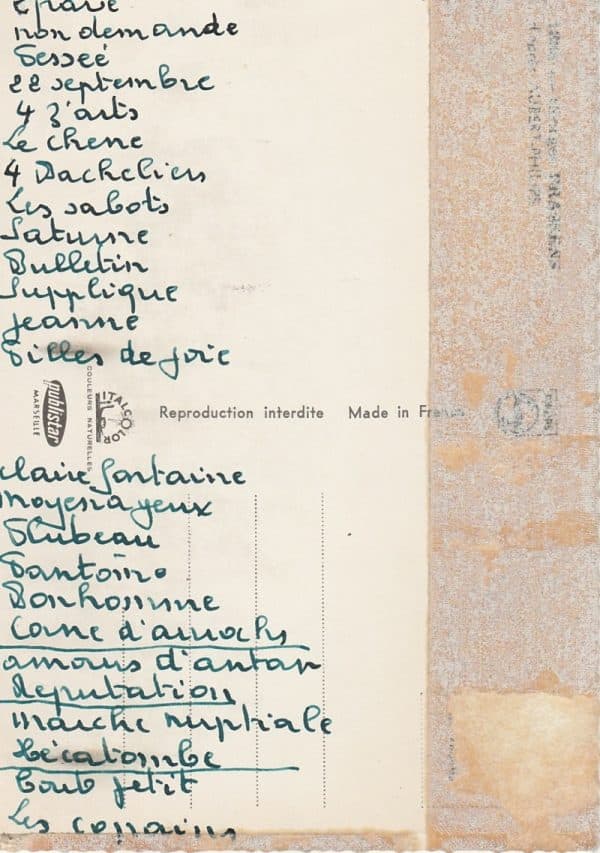 Epave
non demande
Fesseé
22 septembre
4 z'arts
Le chene
4 Bacheliers
Les sabots
Saturne
Bulletin
Supplique
Jeanne
Filles de joie
publistar
MARSEILLE
COULEURS NATURELLES
ITALCOLOR
Reproduction interdite Made in France
claire fontaine
Moyenageux
Fantôme
Bonhomme
Corne d'aurochs
amours d'antan
Reputation
Marche nuptiale
Hécatombe
Tout petit
Les copains